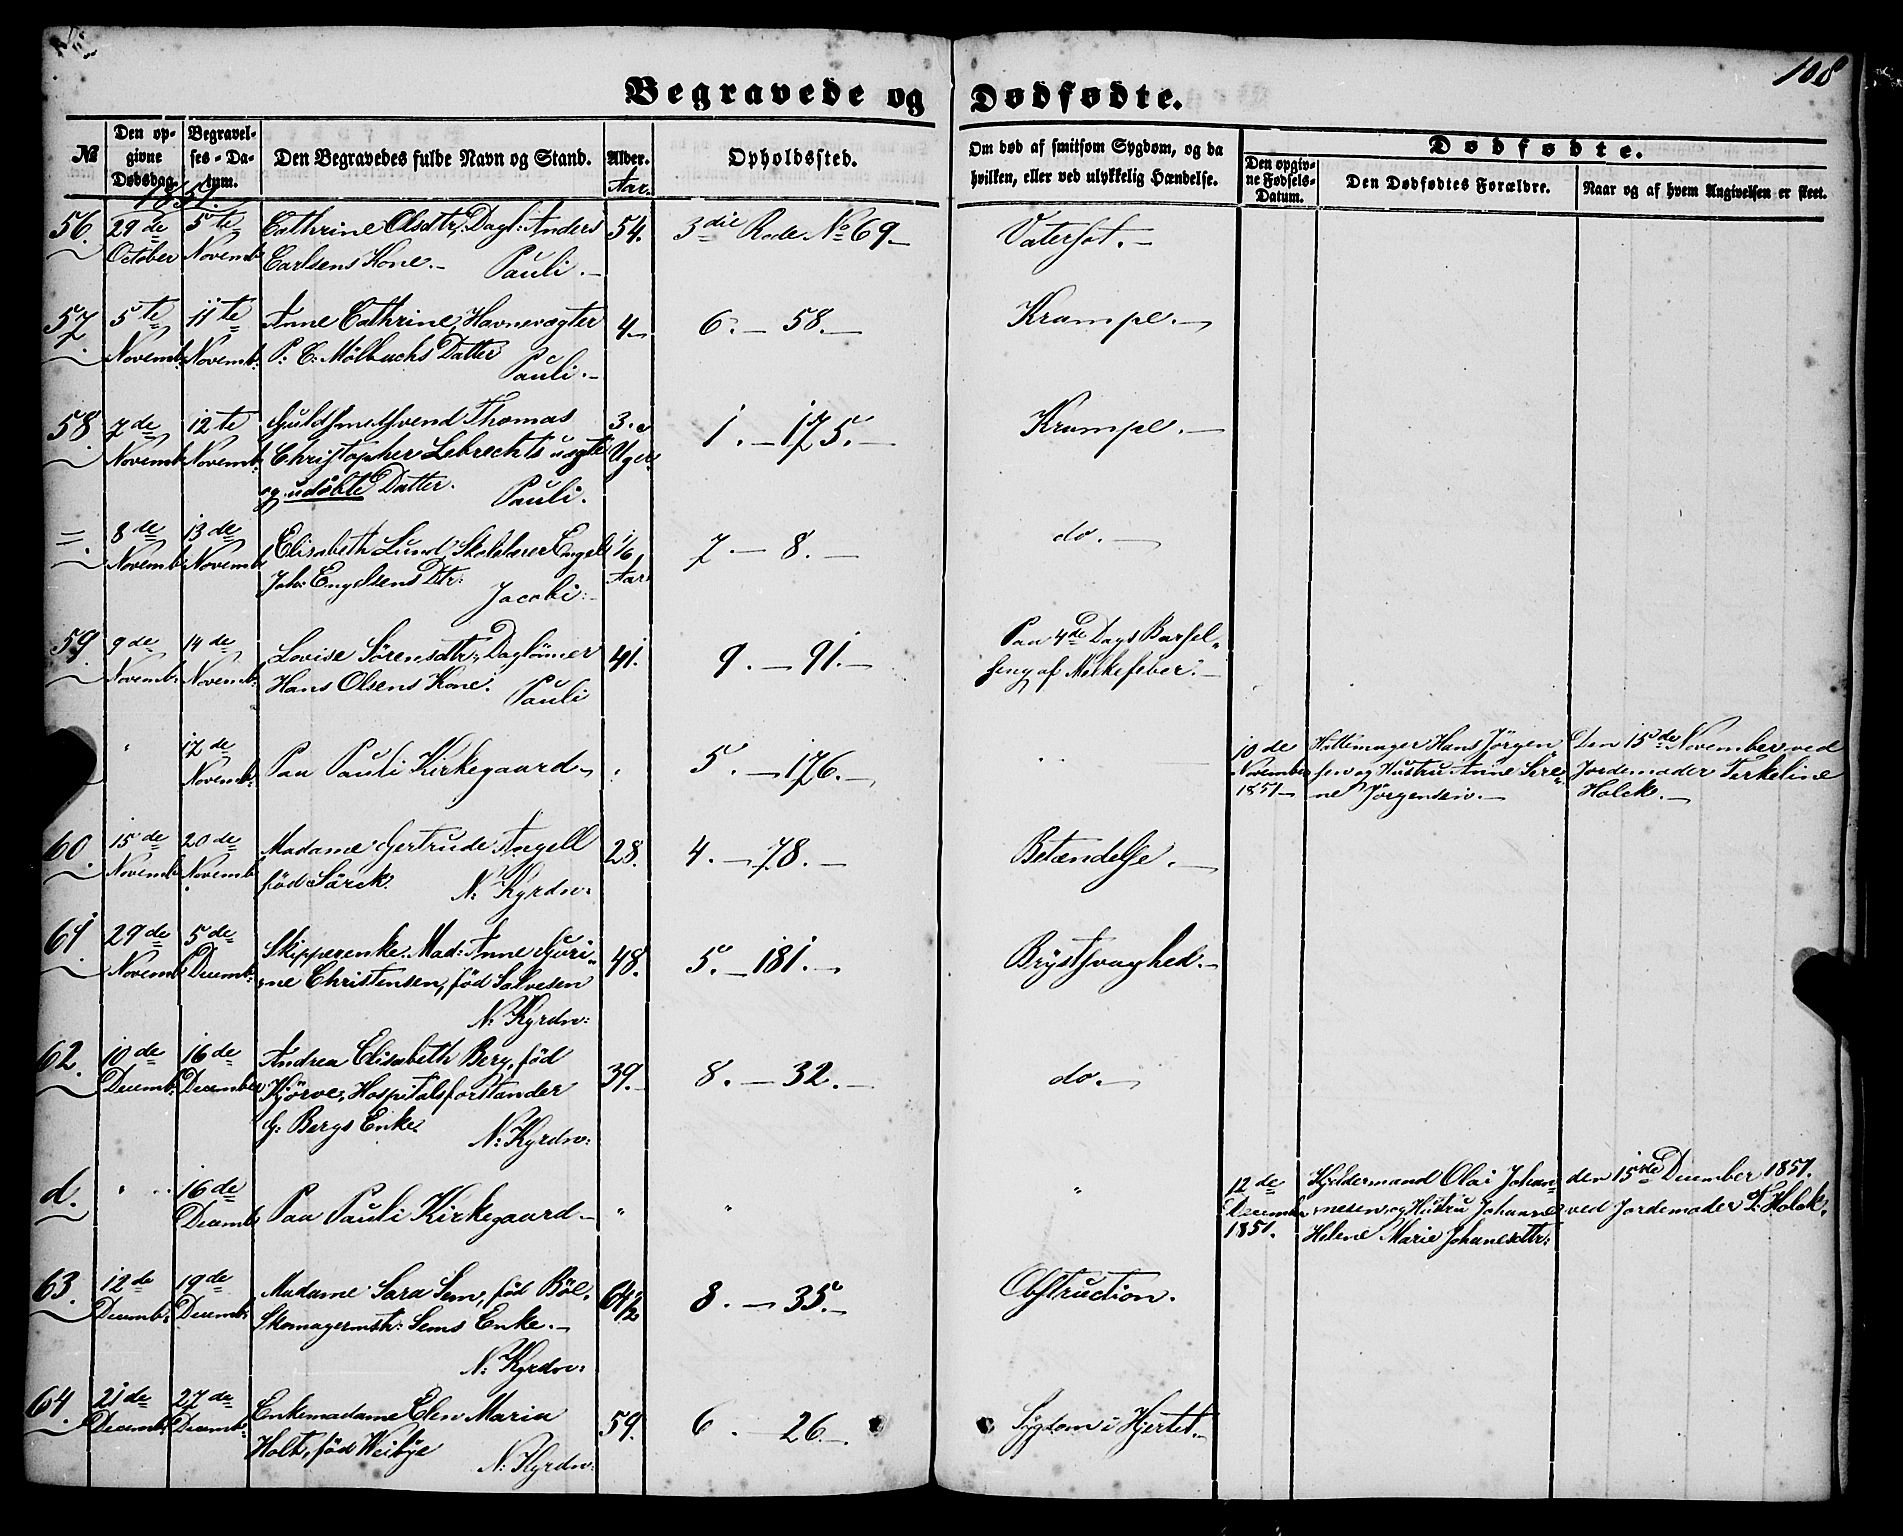 108
Begravede og Dødfødte.
№ Den opgivne Dødsdag. Begravelses-Datum. Den Begravedes fulde Navn og Stand. Alder. Aar. Opholdssted. Om død af smitsom Sygdom, og da hvilken, eller ved ulykkelig Hændelse. Dødfødte.
Den opgivne Fødsels-Datum. Den Dødfødtes Forældre. Naar og af hvem Angivelsen er skeet.
1851.
56. 29de 5te Cathrine Olsdtr, Dagl: Anders 54. 3die Rode No 69 Vatersot.
October Novemb: Carlsens Kone. Pauli.
57. 5te 11te Anne Cathrine, Havnevogter 4. 6. 58. Krampe.
Novemb: Novemb: P. C. Mölbachs Datter
Pauli.
58. 7de 12te Guldsmedsvend Thomas 3. 1. 175. Krampe.
Novemb: Novemb: Christopher Lebrechts uægte Uger
og udöbte Datter. Pauli.
=. 8de 13de Elisabeth Lund, Skolelærer Engel 1/6 7. 8. do.
Novemb: Novemb: Joh: Engelsens Dtr: Aar
Jacobi.
59. 9de 14de Lovise Sörensdtr, Daglönner 41. 9. 91. Paa 4de Dags Barsel-
Novemb: Novemb: Hans Olsens Kone. Pauli seng af Melkefeber.
17de Paa Pauli Kirkegaard 5. 176. 10de Hattemager Hans Jörgen Den 15de November ved
Novemb: November sen og Hustru Anne Sere- Jordemoder Terkeline
1851 ne Jörgensen. Holck.
60. 15de 20de Madame Gertrude Angell 28. 4. 78. Betændelse.
Novemb: Novemb: född Särck. N: Kyrdn:
61. 29de 5de Skipperenke Mad: Anne Guri- 48. 5. 181. Brystsvaghed.
Novemb: Decemb: ne Christensen, föd Salvesen
N: Kyrdn:
62. 10de 16de Andrea Elisabeth Berg, föd 39. 8. 32. do.
Decemb: December Kjörve, Hospitalsforstander
G: Bergs Enke. N: Kyrdn:
d. 16de Paa Pauli Kirkegaard 12de Kjeldermand Olai Johan- den 15de December 1851.
Decemb: December nesen og Hustru Johanne ved Jordemoder T. Holck.
1851. Helene Marie Johanesdtr:
63. 12de 19de Madame Sara Sem, föd Böl. 64 1/2 8. 35. Obstruction.
Decemb: Decemb: Skomagermstr: Sems Enke.
N: Kyrdn:
64. 21de 27de Enkemadame Elen Maria 59. 6. 26. Sygdom i Hjertet.
Decemb: Decemb: Holt, föd Weibye
N: Kyrdn: